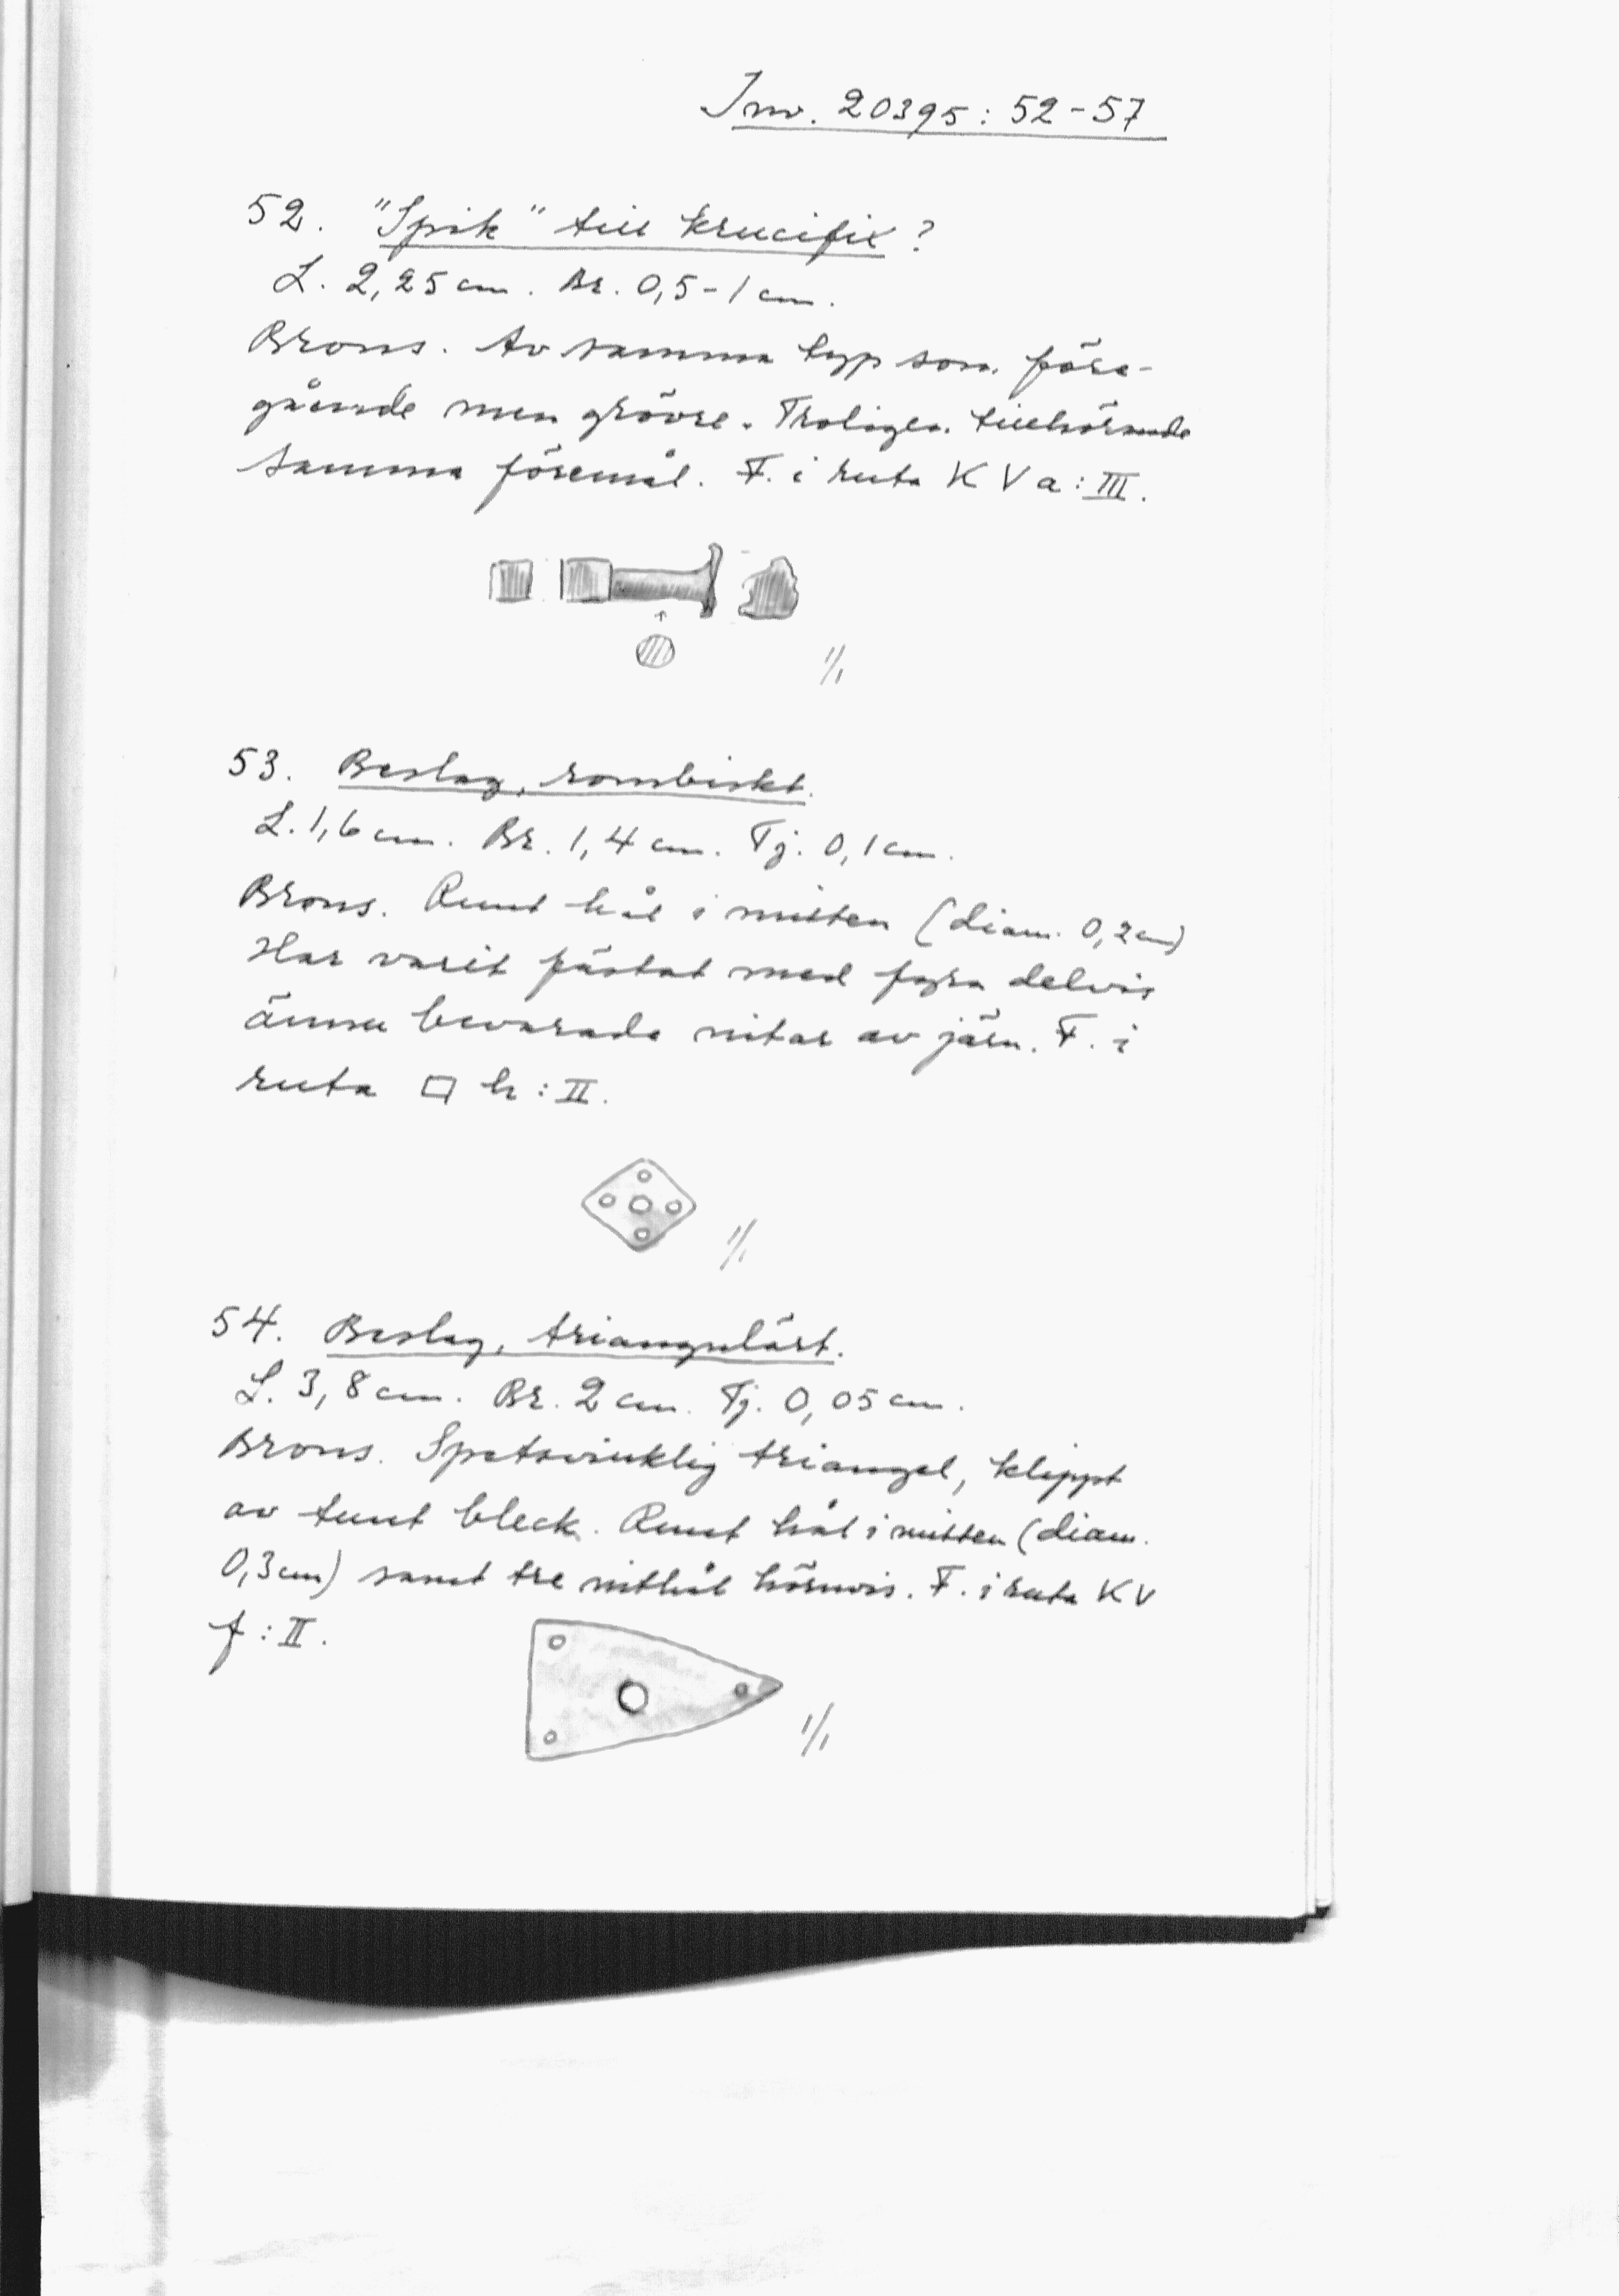 Inv. 20395: 52-57
52. "Spik" till krucifix?
L. 2,25 cm. Br. 0,5-1 cm.
Brons. Av samma typ som före-
gående men grövre. Troligen tillhörande
samma föremål. F. i ruta K V a: III.
1/1
53. Beslag, rombiskt.
L. 1,6 cm. Br. 1,4 cm. Tj. 0,1 cm.
Brons. Runt hål i mitten (diam. 0,2 cm)
Har varit fästat med fyra delvis
ännu bevarade nitar av järn. F. i
ruta □ h: II.
1/1
54. Beslag, triangulärt.
L. 3,8 cm. Br. 2 cm. Tj. 0,05 cm.
Brons. Spetsvinklig triangel, klippt
av tunt bleck. Runt hål i mitten (diam.
0,3 cm) samt tre nithål hörnvis. F. i ruta K V
f: II.
1/1